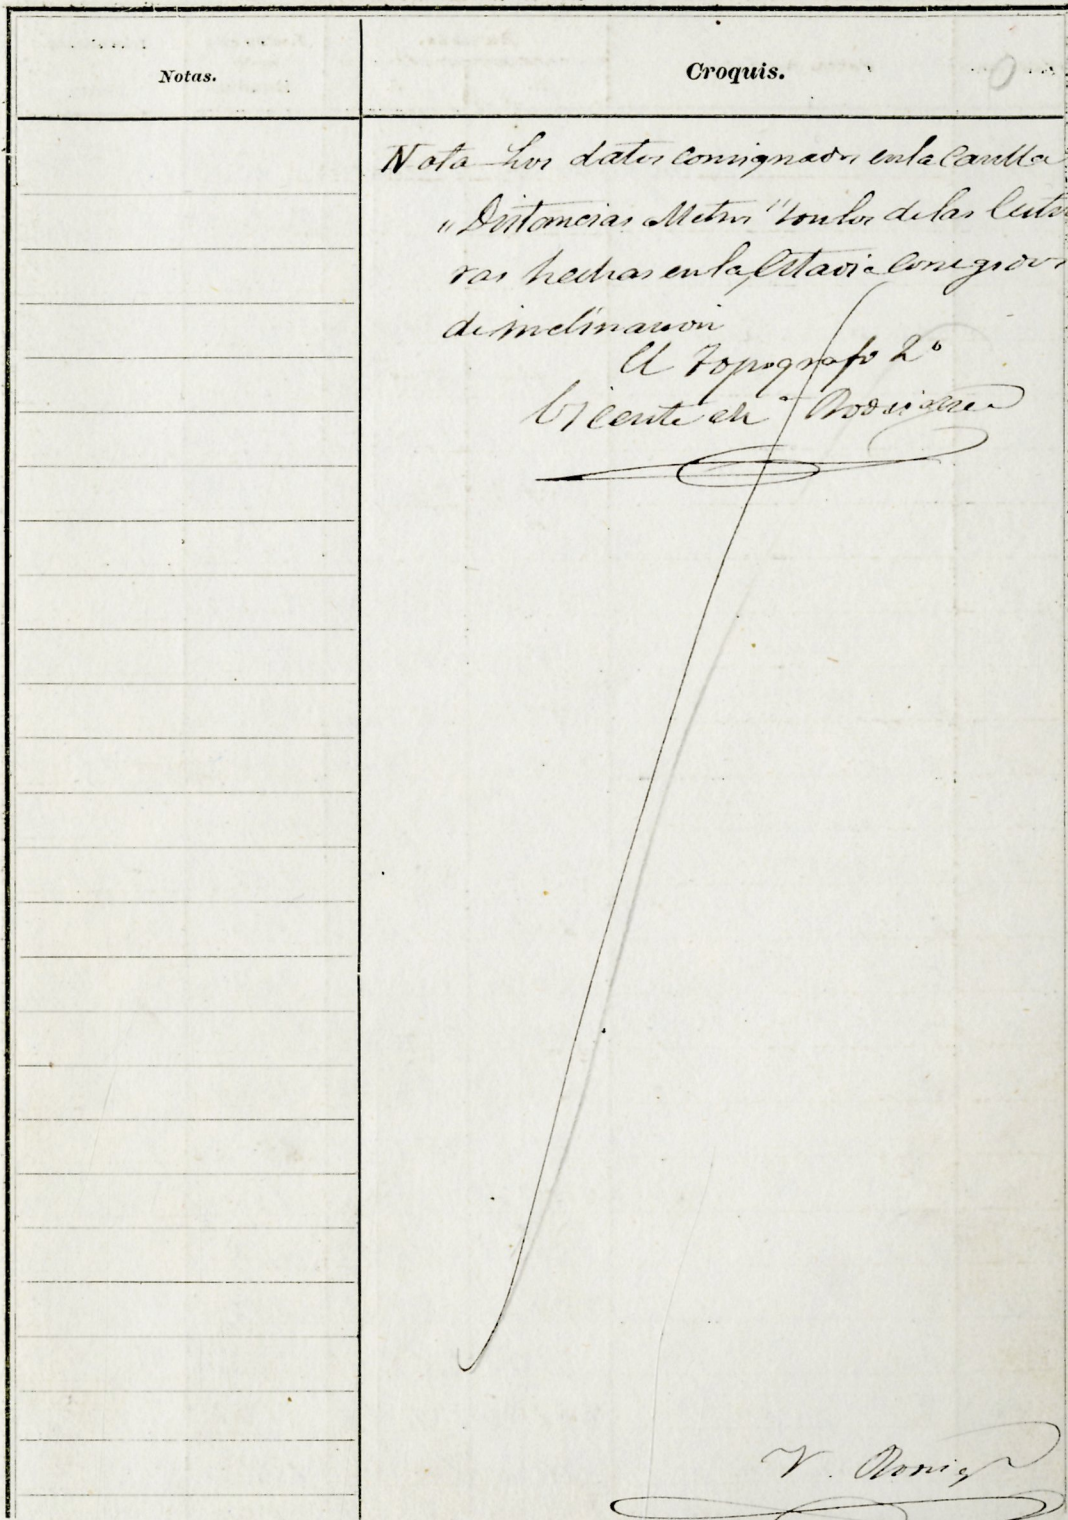 Notas.
Croquis.
Nota Los datos consignados en la casilla
"Distancias Metros" son los de las lectu
ras hechas en la Estadia con grados
de inclinacion
El Topografo 2º
Vicente Mª Rodriguez
V. Rodrig